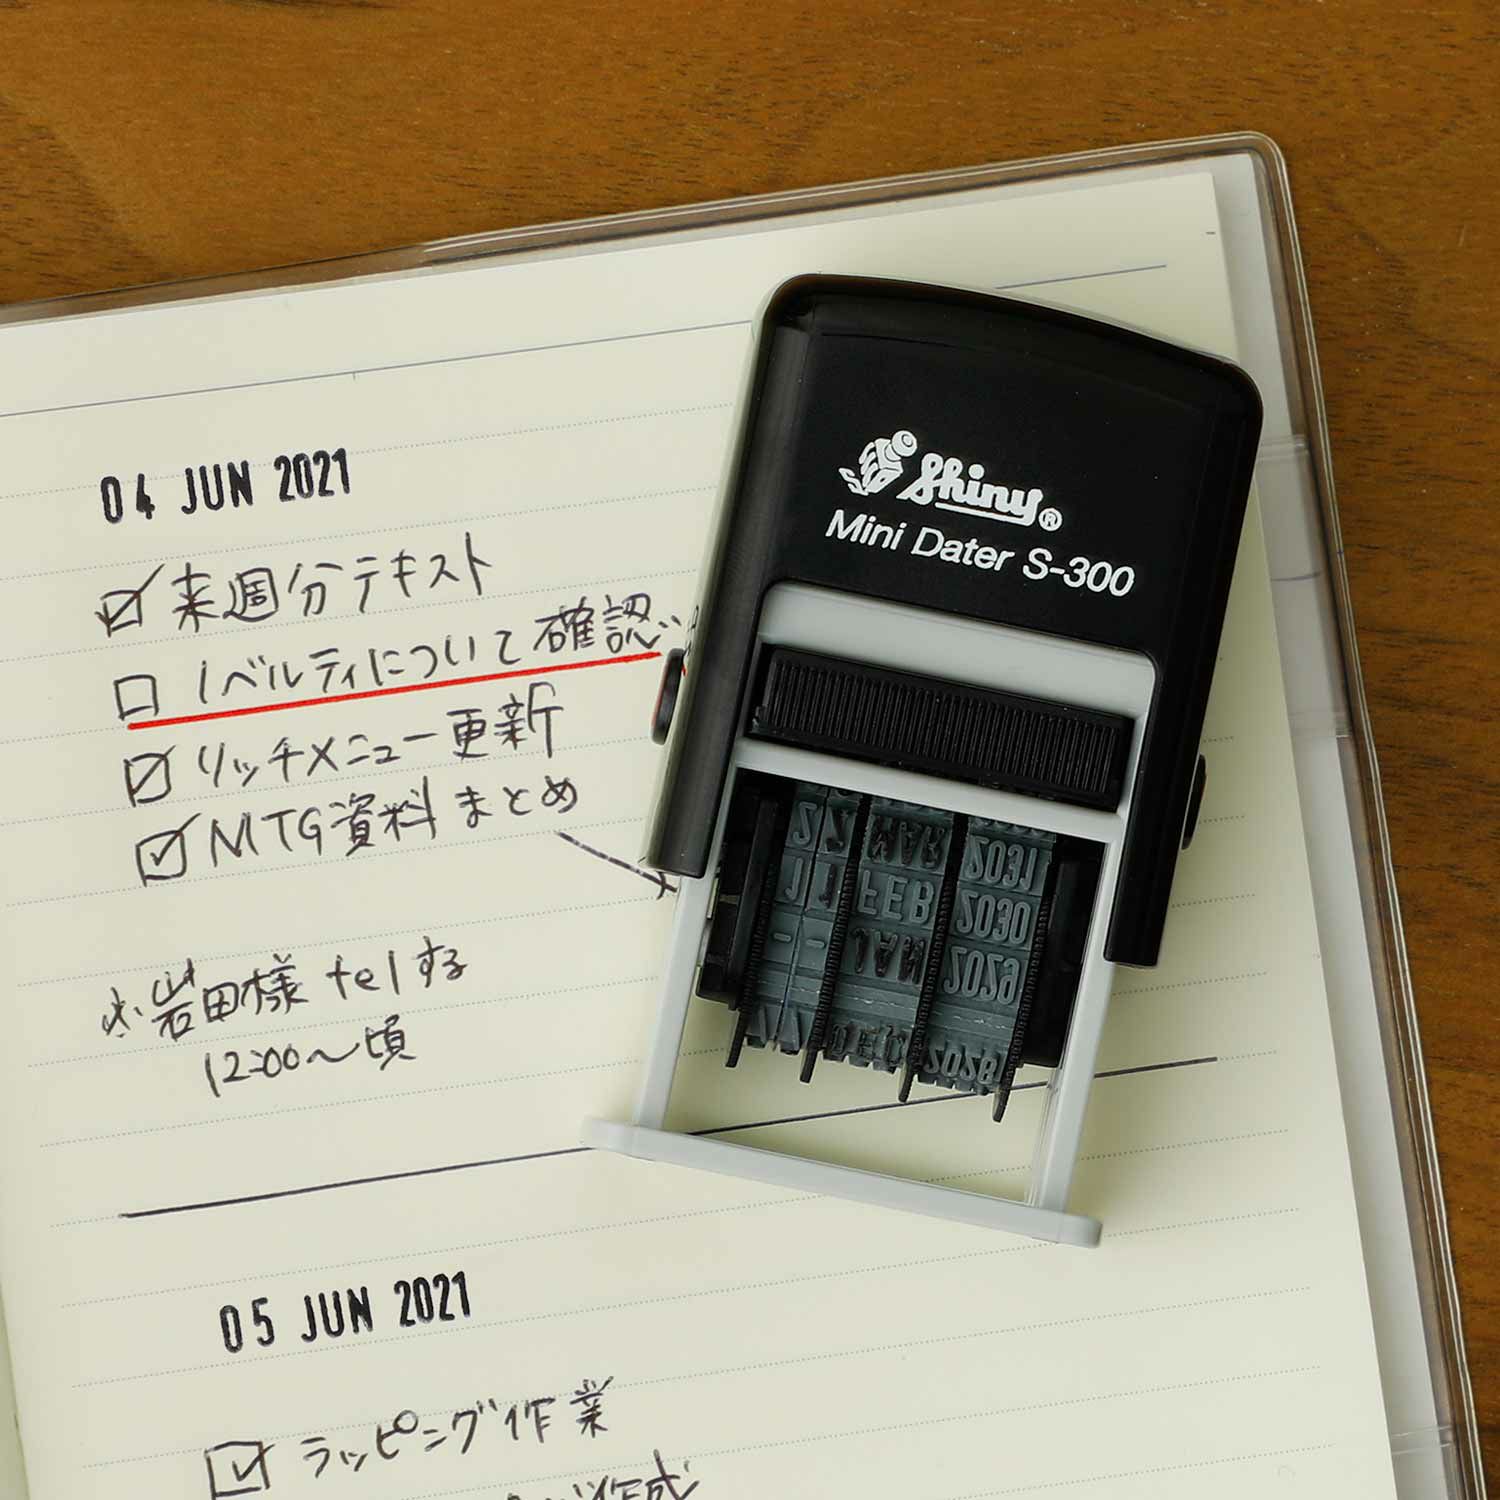 04 JUN 2021
来週分テキスト
ノベルティについて確認
リッチメニュー更新
MTG資料まとめ
※岩田様telする
12:00〜頃
05 JUN 2021
ラッピング作業
作成
Shiny®
Mini Dater S-300
2 2 MAR 2031
1 1 FEB 2030
- - JAN 2029
DEC 2028